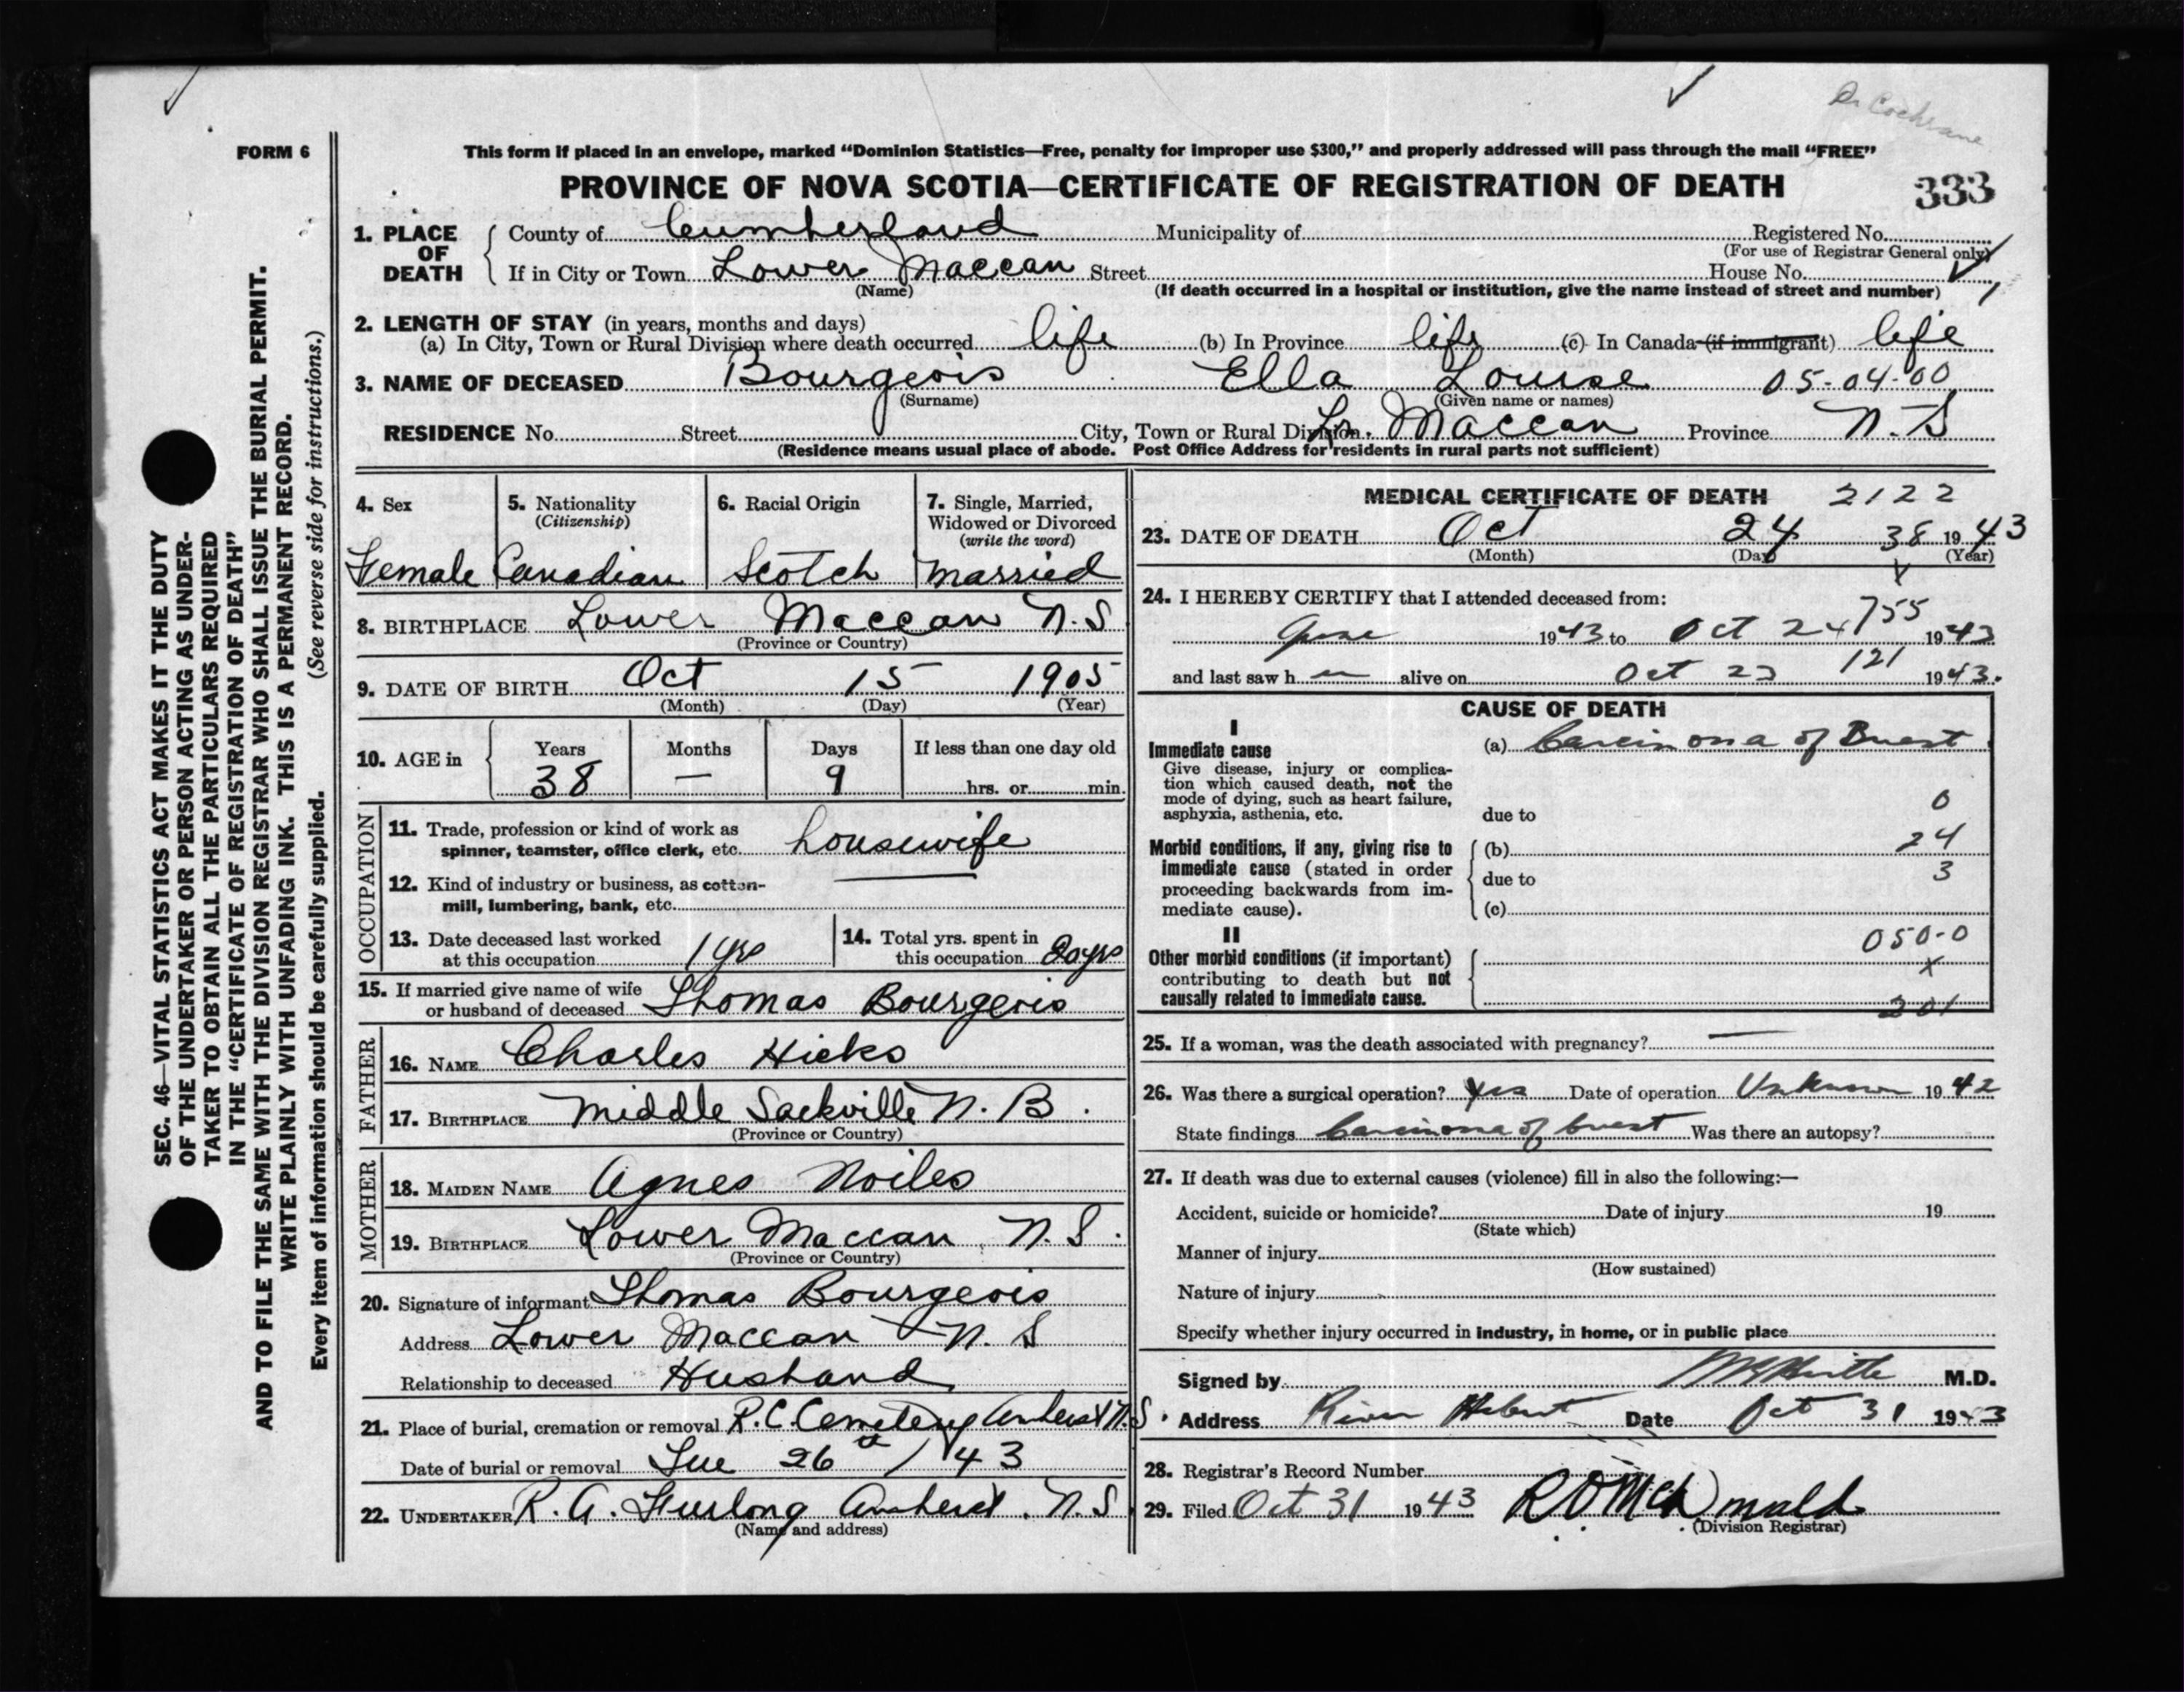 Dr Cochrane
FORM 6
This form if placed in an envelope, marked “Dominion Statistics—Free, penalty for improper use $300,” and properly addressed will pass through the mail “FREE”
PROVINCE OF NOVA SCOTIA—CERTIFICATE OF REGISTRATION OF DEATH
333
1. PLACE OF DEATH
County of Cumberland Municipality of Registered No.
(For use of Registrar General only)
If in City or Town Lower Maccan Street House No.
(Name) (If death occurred in a hospital or institution, give the name instead of street and number)
2. LENGTH OF STAY (in years, months and days)
(a) In City, Town or Rural Division where death occurred life (b) In Province life (c) In Canada (if immigrant) life
3. NAME OF DECEASED Bourgeois Ella Louise 05-04-00
(Surname) (Given name or names)
RESIDENCE No. Street City, Town or Rural Division Lr. Maccan Province N.S
(Residence means usual place of abode. Post Office Address for residents in rural parts not sufficient)
SEC. 46—VITAL STATISTICS ACT MAKES IT THE DUTY
OF THE UNDERTAKER OR PERSON ACTING AS UNDER-
TAKER TO OBTAIN ALL THE PARTICULARS REQUIRED
IN THE “CERTIFICATE OF REGISTRATION OF DEATH”
AND TO FILE THE SAME WITH THE DIVISION REGISTRAR WHO SHALL ISSUE THE BURIAL PERMIT.
WRITE PLAINLY WITH UNFADING INK. THIS IS A PERMANENT RECORD.
Every item of information should be carefully supplied. (See reverse side for instructions.)
4. Sex 5. Nationality 6. Racial Origin 7. Single, Married,
(Citizenship) Widowed or Divorced
(write the word)
Female Canadian Scotch Married
8. BIRTHPLACE Lower Maccan N.S
(Province or Country)
9. DATE OF BIRTH Oct 15 1905
(Month) (Day) (Year)
10. AGE in Years Months Days If less than one day old
38 — 9 hrs. or min.
OCCUPATION
11. Trade, profession or kind of work as
spinner, teamster, office clerk, etc. housewife
12. Kind of industry or business, as cotton-
mill, lumbering, bank, etc.
13. Date deceased last worked
at this occupation 1 yr
14. Total yrs. spent in
this occupation 20yrs
15. If married give name of wife
or husband of deceased Thomas Bourgeois
FATHER
16. NAME Charles Hicks
17. BIRTHPLACE Middle Sackville N. B.
(Province or Country)
MOTHER
18. MAIDEN NAME Agnes Noiles
19. BIRTHPLACE Lower Maccan, N.S.
(Province or Country)
20. Signature of informant Thomas Bourgeois
Address Lower Maccan N. S
Relationship to deceased Husband
21. Place of burial, cremation or removal R.C. Cemetery Amherst N.S.
Date of burial or removal Tue 26th / 43
22. UNDERTAKER R. A. Furlong Amherst. N.S
(Name and address)
MEDICAL CERTIFICATE OF DEATH 2122
23. DATE OF DEATH Oct 24 38 1943
(Month) (Day) (Year)
24. I HEREBY CERTIFY that I attended deceased from:
June 1943 to Oct 24 755 1943
and last saw her alive on Oct 23 121 1943.
CAUSE OF DEATH
I
Immediate cause (a) Carcinoma of Breast
Give disease, injury or complica-
tion which caused death, not the
mode of dying, such as heart failure,
asphyxia, asthenia, etc. due to 0
Morbid conditions, if any, giving rise to (b) 24
immediate cause (stated in order due to 3
proceeding backwards from im-
mediate cause). (c)
II 050-0
Other morbid conditions (if important) x
contributing to death but not
causally related to immediate cause. 201
25. If a woman, was the death associated with pregnancy? —
26. Was there a surgical operation? Yes Date of operation Unknown 1942
State findings Carcinoma of breast Was there an autopsy?
27. If death was due to external causes (violence) fill in also the following:—
Accident, suicide or homicide? Date of injury 19
(State which)
Manner of injury
(How sustained)
Nature of injury
Specify whether injury occurred in industry, in home, or in public place
Signed by M.D.
Address River Hebert Date Oct 31 1943
28. Registrar's Record Number
29. Filed Oct 31 1943 R O McDonald
(Division Registrar)